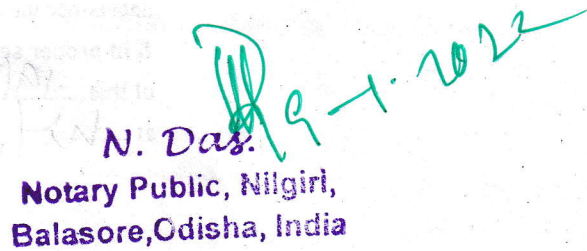 9-1-2022
N. Das.
Notary Public, Nilgiri,
Balasore,Odisha, India